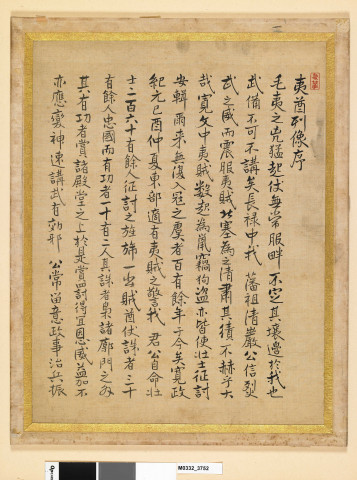 夷酋列像序
毛夷之兇猛起伏無常服畔不定其壤邊於我也
武備不可不講矣長祿中我 藩祖清嚴公信烈
武之威而震服夷賊北塞為之清肅其績不赫乎大
哉寬文中夷賊數起為鼠竊狗盜亦皆使壯士征討
安輯爾来無復入寇之虞者百有餘年于今矣寬政
紀元己酉仲夏東部適有夷賊之警我 君公自命壯
士二百六十有餘人征討之旌旆一出賊酋伏誅者三十
有餘人忠國而有功者一十有二人其誅者梟諸廓門之外
其有功者賞諸殿堂之上於是賞罰得宜恩威益加不
亦應變神速講武有効邪 公常留意政事治兵振
M0332_3752